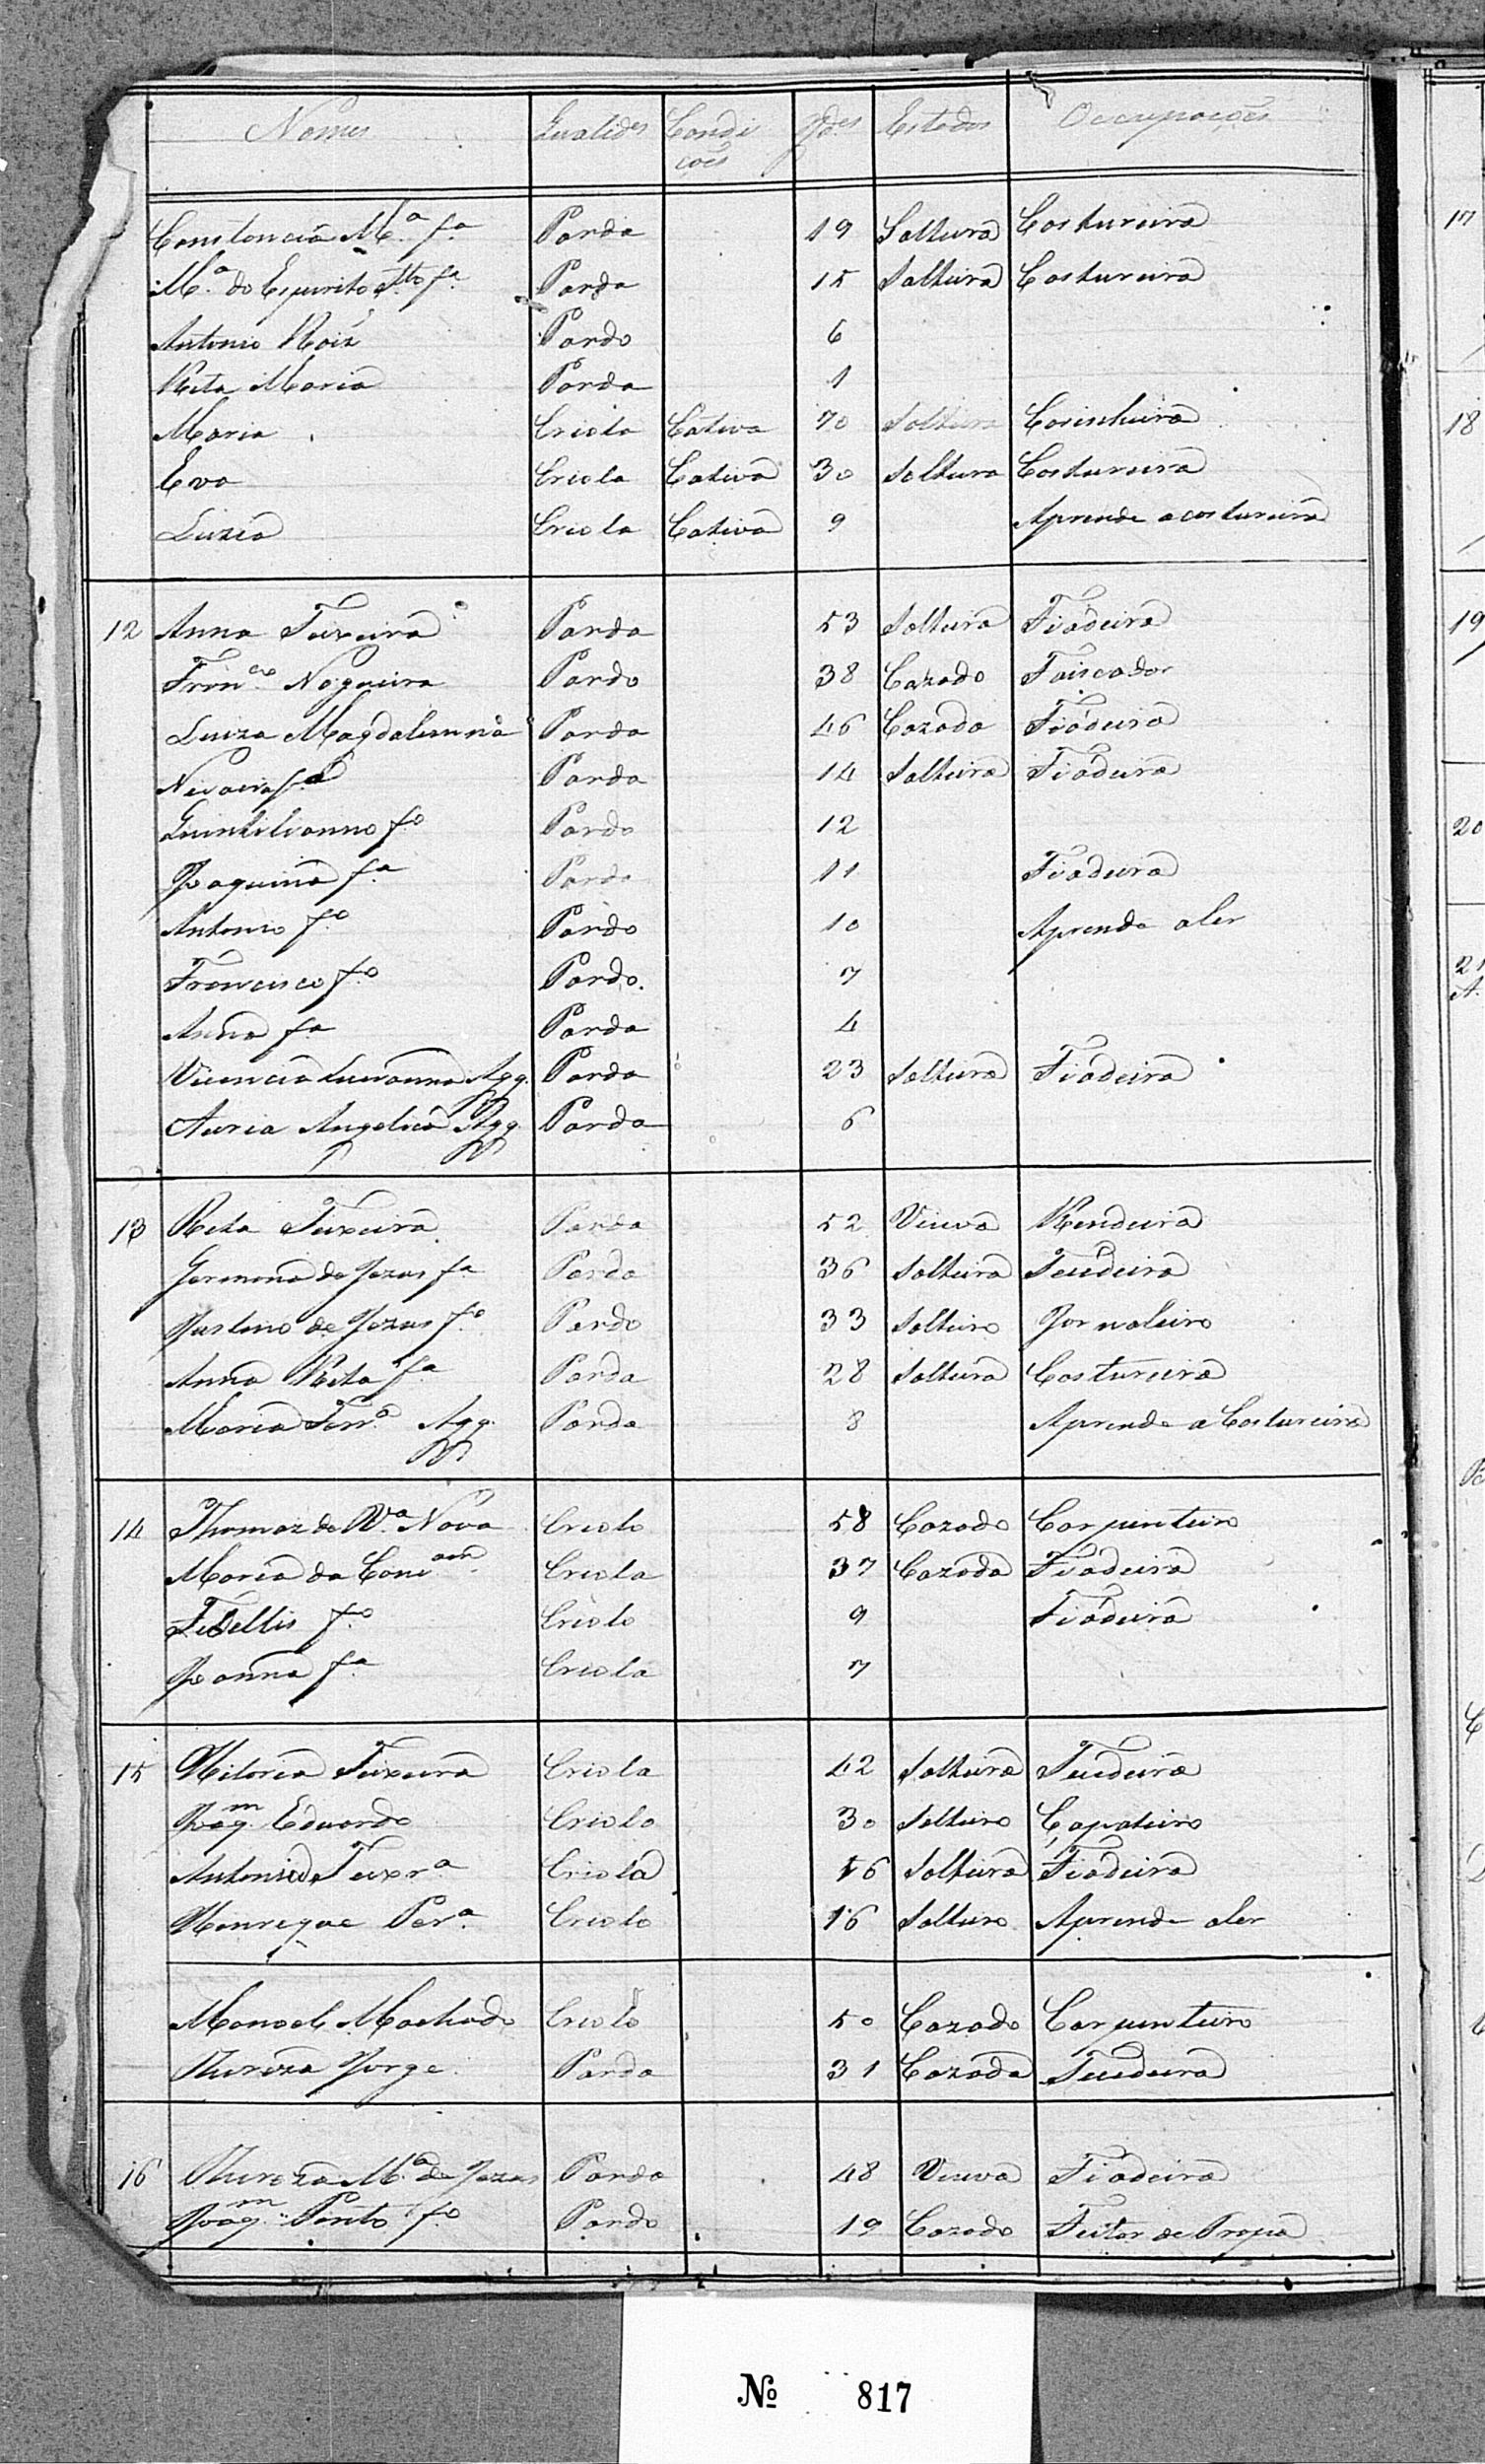 Nomes Qualid.es Condições Id.es Estados Occupações
Constancia M.a f.a Parda 19 Solteira Costureira
M.a do Espirito Sto f.a Parda 15 Solteira Costureira
Antonio Roiz Pardo 6
Rita Maria Parda 1
Maria Criola Cativa 70 Solteira Cosinheira
Eva Criola Cativa 30 Solteira Costureira
Luzia Criola Cativa 9 Aprende a costureira
12 Anna Teixeira Parda 53 Solteira Fiadeira
Fran.co Nogueira Pardo 38 Cazado Faiscador
Luiza Magdalenna Parda 46 Cazada Fiadeira
f.a Parda 14 Solteira Fiadeira
Quintilianno f.o Pardo 12
Joaquina f.a Parda 11 Fiadeira
Antonio f.o Pardo 10 Aprende a ler
Francisco f.o Pardo 7
Anna f.a Parda 4
Vicencia Agg. Parda 23 Solteira Fiadeira
Angelica Agg. Parda 6
13 Rita Teixeira Parda 52 Viuva Rendeira
Germana de Jezus f.a Parda 36 Solteira Tecideira
Justino de Jezus f.o Pardo 33 Solteiro Jornaleiro
Anna Rita f.a Parda 28 Solteira Costureira
Maria Ferr.a Agg. Parda 8 Aprende a Costureira
14 Thomaz da V.a Nova Criolo 58 Cazado Carpinteiro
Maria da Conc.am Criola 37 Cazada Fiadeira
Fidellis f.o Criolo 9 Fiadeira
Joanna f.a Criola 7
15 Vitoria Teixeira Criola 42 Solteira Tecideira
Joaq.m Eduardo Criolo 30 Solteiro Çapateiro
Antonia Teixr.a Criola 16 Solteira Fiadeira
Henrique Per.a Criolo 16 Solteiro Aprende a ler
Manoel Machado Criolo 50 Cazado Carpinteiro
Thereza Jorge Parda 31 Cazada Tecideira
16 Thereza M.a de Jezus Parda 48 Viuva Fiadeira
Joaq.m Pinto f.o Pardo 19 Cazado Feitor de Tropa
17
18
19
20
21
No 817